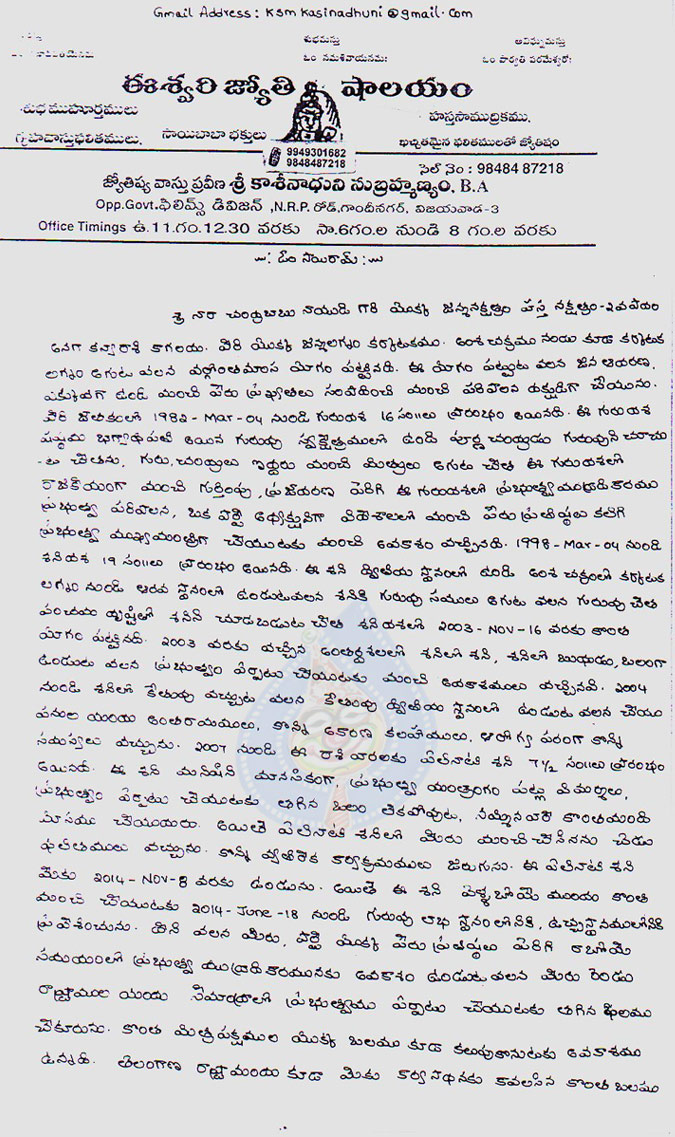 Gmail Address: Ksm Kasinadhuni@gmail.com
శుభమస్తు
అవిఘ్నమస్తు
ఓం నమఃశివాయనమః
ఓం పార్వతి పరమేశ్వరోః
ఈశ్వరి జ్యోతిషాలయం
శుభముహూర్తములు
హస్తసాముద్రికము,
గృహవాస్తుఫలితములు.
సాయిబాబా భక్తులు
ఖచ్చితమైన ఫలితములతో జ్యోతిషం
9949301682
9848487218
సెల్ నెం : 98484 87218
జ్యోతిష్య వాస్తు ప్రవీణ శ్రీ కాశీనాధుని సుబ్రహ్మణ్యం, B.A
Opp.Govt.ఫిలిమ్స్ డివిజన్ ,N.R.P. రోడ్,గాంధీనగర్, విజయవాడ-3
Office Timings ఉ.11.గం.12.30 వరకు సా.6గం.ల నుండి 8 గం.ల వరకు
~: ఓం సాయిరామ్ :~
శ్రీ నారా చంద్రబాబు నాయుడి గారి యొక్క జన్మనక్షత్రం హస్త నక్షత్రం-2వపాదం
అనగా కన్యారాశి కాగలదు. వీరి యొక్క జన్మలగ్నం కర్కాటకము. అంశచక్రము నందు కూడ కర్కాటక
లగ్నం అగుట వలన వర్గోత్తమాంశ యోగం పట్టినది. ఈ యోగం పట్టుట వలన జన ఆదరణ,
ఎక్కువగా ఉండి మంచి పేరు ప్రఖ్యాతలు సంపాదించి మంచి పరిపాలన దక్షుడిగా చేయును.
వీరి జాతకంలో 1982-Mar-04 నుండి గురుదశ 16సం॥లు ప్రారంభం అయినది. ఈ గురుదశ
షష్ఠమ భాగ్యాధిపతి అయిన గురువు స్వక్షేత్రములో ఉండి పూర్ణ చంద్రుడు గురువుని చూచు
-ట చేతను, గురు, చంద్రులు ఇద్దరు మంచి మిత్రులు అగుట చేత ఈ గురుదశలో
రాజకీయంగా మంచి గుర్తింపు, ప్రజాదరణ పెరిగి ఈ గురుదశలో ప్రభుత్వముద్రాధికారము
ప్రభుత్వ పరిపాలన, ఒక పార్టీ అధ్యక్షునిగా విదేశాలలో మంచి పేరు ప్రతిష్ఠలు కలిగి
ప్రభుత్వ ముఖ్యమంత్రిగా చేయుటకు మంచి అవకాశం వచ్చినది. 1998-Mar-04 నుండి
శనిదశ 19 సం॥లు ప్రారంభం అయినది. ఈ శని ద్వితీయ స్థానంలో ఉండి అంశ చక్రంలో కర్కాటక
లగ్నం నుండి ఆరవ స్థానంలో ఉండుటవలన శనికి గురువు సములు అగుట వలన గురువు చేత
పంచమ దృష్టితో శనిని చూడబడుట చేత శనిదశలో 2003-Nov-16 వరకు కొంత
యోగం పట్టినది. 2003 వరకు వచ్చిన అంతర్దశలలో శనిలో శని, శనిలో బుధుడు, బలంగా
ఉండుట వలన ప్రభుత్వం ఏర్పాటు చేయుటకు మంచి అవకాశములు వచ్చినవి. 2004
నుండి శనిలో కేతువు వచ్చుట వలన కేతువు ద్వితీయ స్థానంలో ఉండుట వలన చేయు
పనుల యందు అంతరాయములు, కొన్ని అకారణ కలహములు, ఆరోగ్య పరంగా కొన్ని
సమస్యలు వచ్చును. 2007 నుండి ఈ రాశి వారలకు ఏలినాటి శని 7½ సం॥లు ప్రారంభం
అయినది. ఈ శని మనిషిని మానసికంగా, ప్రభుత్వ యంత్రాంగం పట్ల విమర్శలు,
ప్రభుత్వం ఏర్పాటు చేయుటకు తగిన బలం లేకపోవుట, నమ్మినవారే కొంతమంది
మోసము చేయుదురు. అయితే ఏలినాటి శనిలో మీరు మంచి చేసినను చెడు
ఫలితములు వచ్చును. కొన్ని వ్యతిరేక కార్యక్రమములు జరుగును. ఈ ఏలినాటి శని
మీకు 2014-Nov-8 వరకు ఉండును. అయితే ఈ శని వెళ్ళబోయే ముందు కొంత
మంచి చేయుటకు 2014-June-18 నుండి గురువు లాభ స్థానంలోనికి, ఉచ్చస్థానములోనికి
ప్రవేశించును. దీని వలన మీరు, పార్టీ యొక్క పేరు ప్రతిష్ఠలు పెరిగి రాబోయే
సమయంలో ప్రభుత్వ ముద్రాధికారమునకు అవకాశం ఉండుట వలన మీరు రెండు
రాష్ట్రాముల యందు సీమాంధ్రాలో ప్రభుత్వము ఏర్పాటు చేయుటకు తగిన ఫలము
చేకూరును. కొంత మిత్రపక్షముల యొక్క బలము కూడ కలుపుకొనుటకు అవకాశము
ఉన్నది. తెలంగాణ రాష్ట్రామందు కూడ మీకు కార్యసాధనకు కావలసిన కొంత బలము